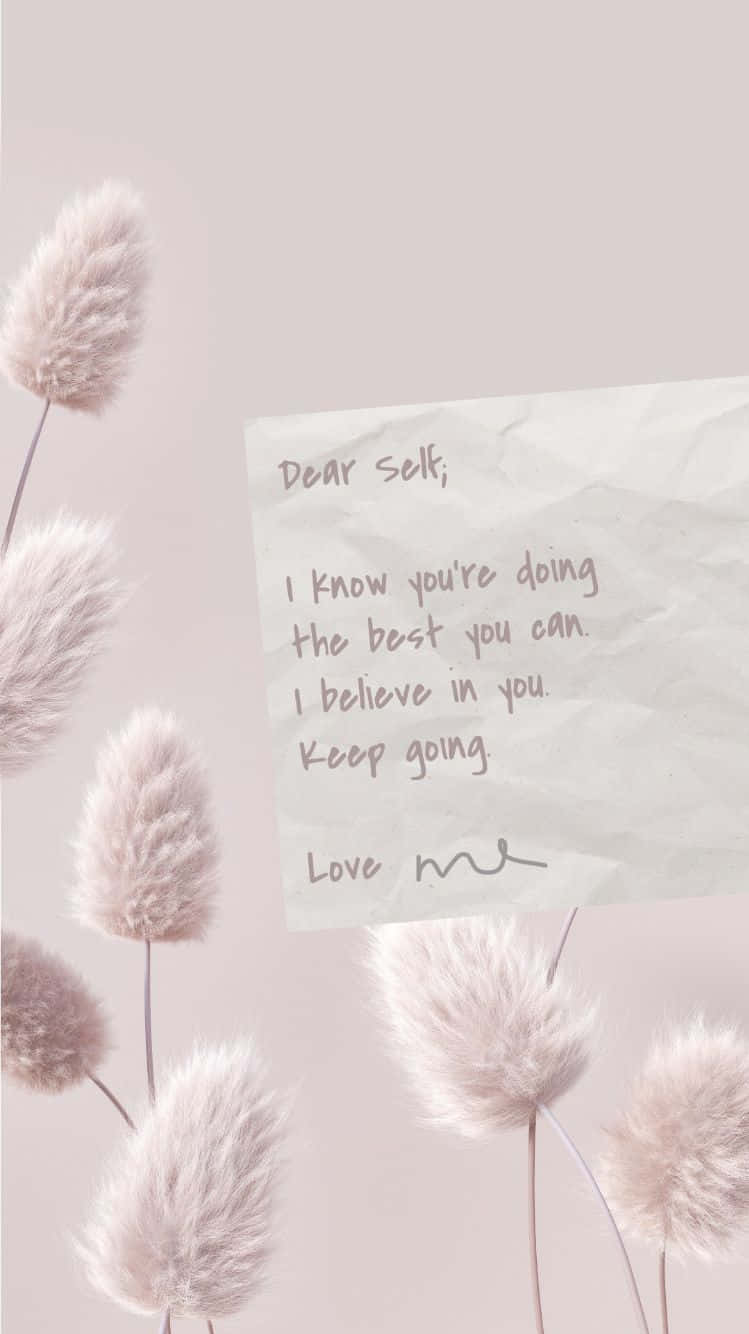 Dear Self;
I know you're doing
the best you can.
I believe in you.
Keep going.
Love me